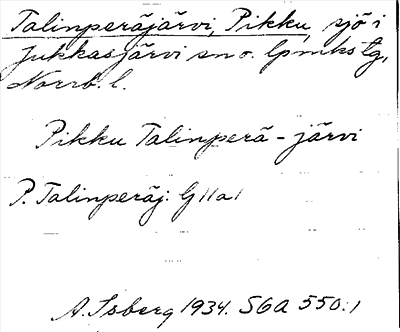 Talinperäjärvi, Pikku, sjö i
Jukkasjärvi sn o. lpmks tg,
Norrb. l.
Pikku Talinperä-järvi
P. Talinperäj. G11a1
A. Isberg 1934. SGA 550:1